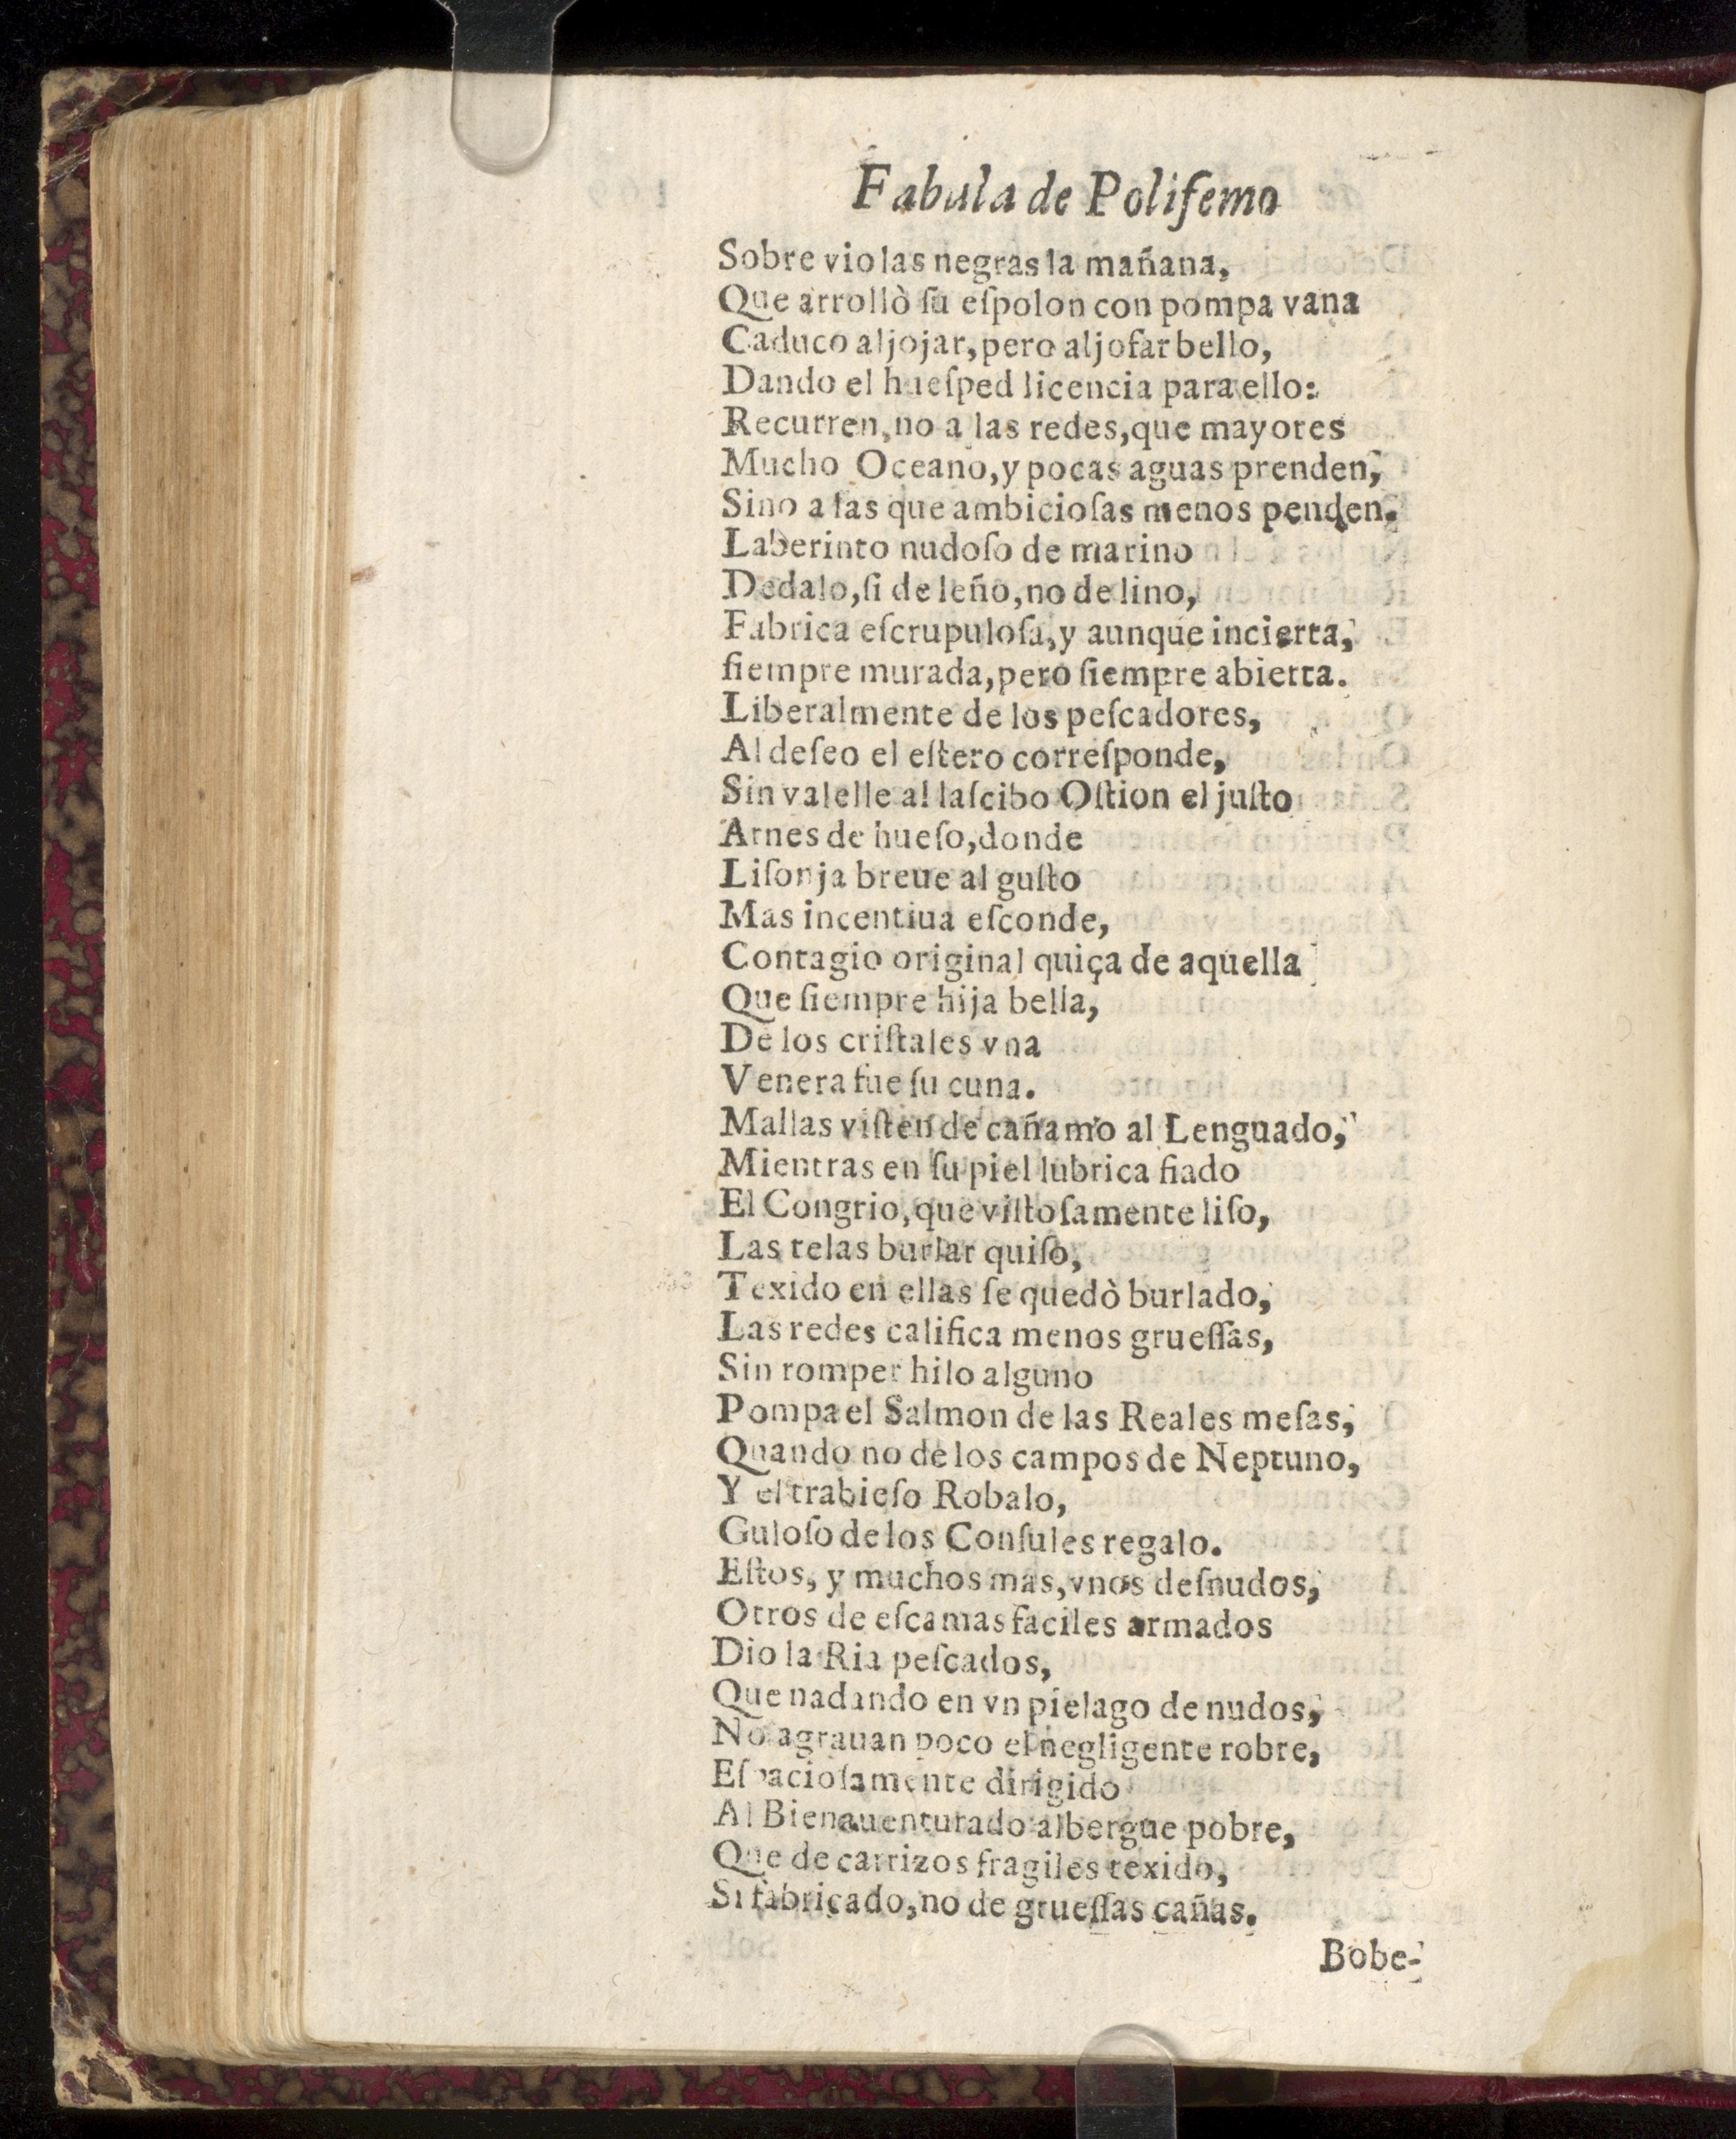 Fabula de Polifemo
Sobre violas negras la mañana,
Que arrollò ſu eſpolon con pompa vana
Caduco aljojar, pero aljofar bello,
Dando el hueſped licencia para ello:
Recurren, no a las redes, que mayores
Mucho Oceano, y pocas aguas prenden,
Sino a las que ambicioſas menos penden.
Laberinto nudoſo de marino
Dedalo, ſi de leño, no de lino,
Fabrica eſcrupuloſa, y aunque incierta,
ſiempre murada, pero ſiempre abierta.
Liberalmente de los peſcadores,
Al deſeo el eſtero correſponde,
Sin valelle al laſcibo Oſtion el juſto
Arnes de hueſo, donde
Liſonja breue al guſto
Mas incentiua eſconde,
Contagio original quiça de aquella
Que ſiempre hija bella,
De los criſtales vna
Venera fue ſu cuna.
Mallas viſten de cañamo al Lenguado,
Mientras en ſu piel lubrica fiado
El Congrio, que viſtoſamente liſo,
Las telas burlar quiſo,
Texido en ellas ſe quedò burlado,
Las redes califica menos grueſſas,
Sin romper hilo alguno
Pompa el Salmon de las Reales meſas,
Quando no de los campos de Neptuno,
Y el trabieſo Robalo,
Guloſo de los Conſules regalo.
Eſtos, y muchos mas, vnos deſnudos,
Otros de eſcamas faciles armados
Dio la Ria peſcados,
Que nadando en vn pielago de nudos,
No agrauan poco el negligente robre,
Eſpacioſamente dirigido
Al Bienauenturado albergue pobre,
Que de carrizos fragiles texido,
Si fabricado, no de grueſſas cañas.
Bobe-